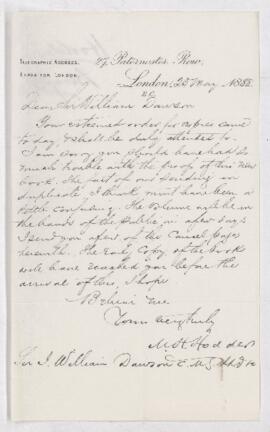 TELEGRAPHIC ADDRESS,
EXPOSITOR LONDON.
27, Paternoster Row,
London, 25 May 1888
E.C.
Dear Sir William Dawson
Your esteemed order for copies came
to day, & shall be duly attended to.
I am sorry you should have had so
much trouble with the proofs of this new
book. The fact of our sending in
duplicate, I think must have been a
little confusing. The Volume will be in
the hands of the Public in a few days
I sent you a few of the
The Early Copy of the book
will have reached you before the
arrival of this, I hope
Believe me
Yours very truly
M. H. Hodder
Sir J. William Dawson C.M.G.